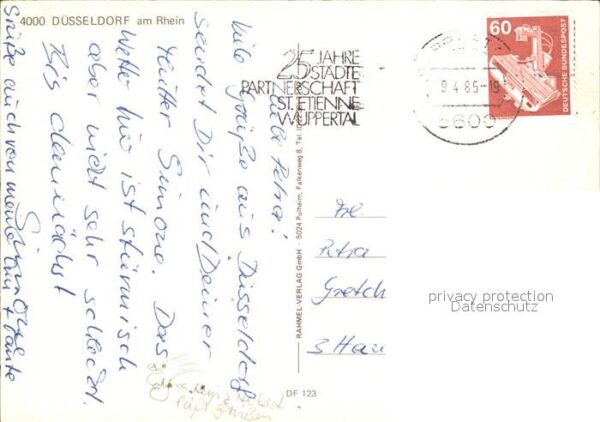 4000 DÜSSELDORF am Rhein
25 JAHRE
STÄDTE-
PARTNERSCHAFT
ST. ETIENNE
WUPPERTAL
9.4.85-19
5600
60
DEUTSCHE BUNDESPOST
Liebe Petra!
Viele Grüße aus Düsseldorf
sendet Dir und Deiner
Mutter Simone. Das
Wetter hier ist stürmisch
aber nicht sehr schlecht.
Bis demnächst
Simone
Grüße auch von meine
+ Tante
RAHMEL-VERLAG GmbH · 5024 Pulheim, Falkenweg 8, Tel.
DF 123
Petra
Gretch
3 Han
privacy protection
Datenschutz